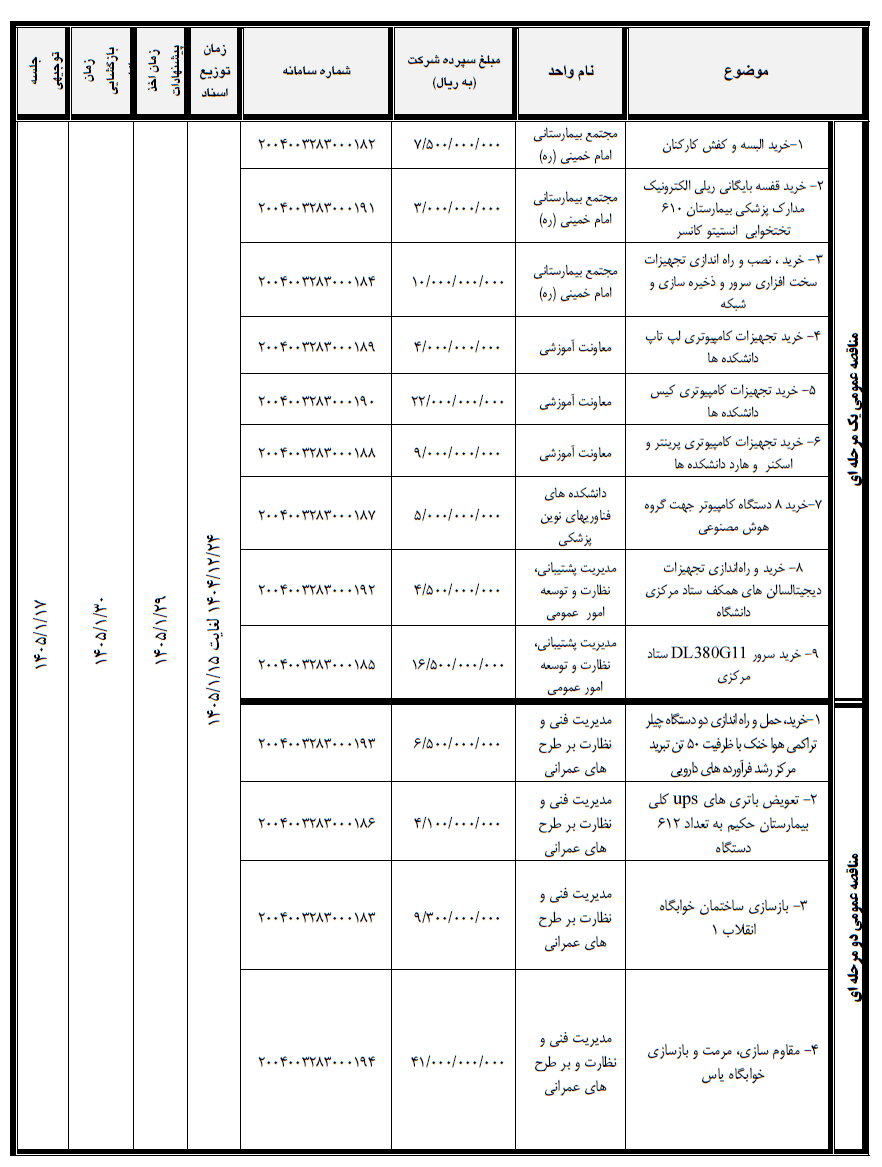 موضوع
نام واحد
مبلغ سپرده شرکت
(به ریال)
شماره سامانه
زمان
توزیع
اسناد
زمان اخذ
پیشنهادات
زمان
بازگشایی
جلسه
توجیهی
مناقصه عمومی یک مرحله ای
۱-خرید البسه و کفش کارکنان
مجتمع بیمارستانی
امام خمینی (ره)
۷/۵۰۰/۰۰۰/۰۰۰
۲۰۰۴۰۰۳۲۸۳۰۰۰۱۸۲
۲- خرید قفسه بایگانی ریلی الکترونیک
مدارک پزشکی بیمارستان ۶۱۰
تختخوابی انستیتو کانسر
مجتمع بیمارستانی
امام خمینی (ره)
۳/۰۰۰/۰۰۰/۰۰۰
۲۰۰۴۰۰۳۲۸۳۰۰۰۱۹۱
۳- خرید ، نصب و راه اندازی تجهیزات
سخت افزاری سرور و ذخیره سازی و
شبکه
مجتمع بیمارستانی
امام خمینی (ره)
۱۰/۰۰۰/۰۰۰/۰۰۰
۲۰۰۴۰۰۳۲۸۳۰۰۰۱۸۴
۴- خرید تجهیزات کامپیوتری لپ تاپ
دانشکده ها
معاونت آموزشی
۴/۰۰۰/۰۰۰/۰۰۰
۲۰۰۴۰۰۳۲۸۳۰۰۰۱۸۹
۵- خرید تجهیزات کامپیوتری کیس
دانشکده ها
معاونت آموزشی
۲۲/۰۰۰/۰۰۰/۰۰۰
۲۰۰۴۰۰۳۲۸۳۰۰۰۱۹۰
۶- خرید تجهیزات کامپیوتری پرینتر و
اسکنر و هارد دانشکده ها
معاونت آموزشی
۹/۰۰۰/۰۰۰/۰۰۰
۲۰۰۴۰۰۳۲۸۳۰۰۰۱۸۸
۷-خرید ۸ دستگاه کامپیوتر جهت گروه
هوش مصنوعی
دانشکده های
فناوریهای نوین
پزشکی
۵/۰۰۰/۰۰۰/۰۰۰
۲۰۰۴۰۰۳۲۸۳۰۰۰۱۸۷
۸- خرید و راه‌اندازی تجهیزات
دیجیتالسالن های همکف ستاد مرکزی
دانشگاه
مدیریت پشتیبانی،
نظارت و توسعه
امور عمومی
۴/۵۰۰/۰۰۰/۰۰۰
۲۰۰۴۰۰۳۲۸۳۰۰۰۱۹۲
۹- خرید سرور DL380G11 ستاد
مرکزی
مدیریت پشتیبانی،
نظارت و توسعه
امور عمومی
۱۶/۵۰۰/۰۰۰/۰۰۰
۲۰۰۴۰۰۳۲۸۳۰۰۰۱۸۵
مناقصه عمومی دو مرحله ای
۱-خرید، حمل و راه اندازی دو دستگاه چیلر
تراکمی هوا خنک با ظرفیت ۵۰ تن تبرید
مرکز رشد فرآورده های دارویی
مدیریت فنی و
نظارت بر طرح
های عمرانی
۶/۵۰۰/۰۰۰/۰۰۰
۲۰۰۴۰۰۳۲۸۳۰۰۰۱۹۳
۲- تعویض باتری های ups کلی
بیمارستان حکیم به تعداد ۶۱۲
دستگاه
مدیریت فنی و
نظارت بر طرح
های عمرانی
۴/۱۰۰/۰۰۰/۰۰۰
۲۰۰۴۰۰۳۲۸۳۰۰۰۱۸۶
۳- بازسازی ساختمان خوابگاه
انقلاب ۱
مدیریت فنی و
نظارت بر طرح
های عمرانی
۹/۳۰۰/۰۰۰/۰۰۰
۲۰۰۴۰۰۳۲۸۳۰۰۰۱۸۳
۴- مقاوم سازی، مرمت و بازسازی
خوابگاه یاس
مدیریت فنی و
نظارت و بر طرح
های عمرانی
۴۱/۰۰۰/۰۰۰/۰۰۰
۲۰۰۴۰۰۳۲۸۳۰۰۰۱۹۴
۱۴۰۴/۱۲/۲۴ لغایت ۱۴۰۵/۱/۱۵
۱۴۰۵/۱/۲۹
۱۴۰۵/۱/۳۰
۱۴۰۵/۱/۱۷